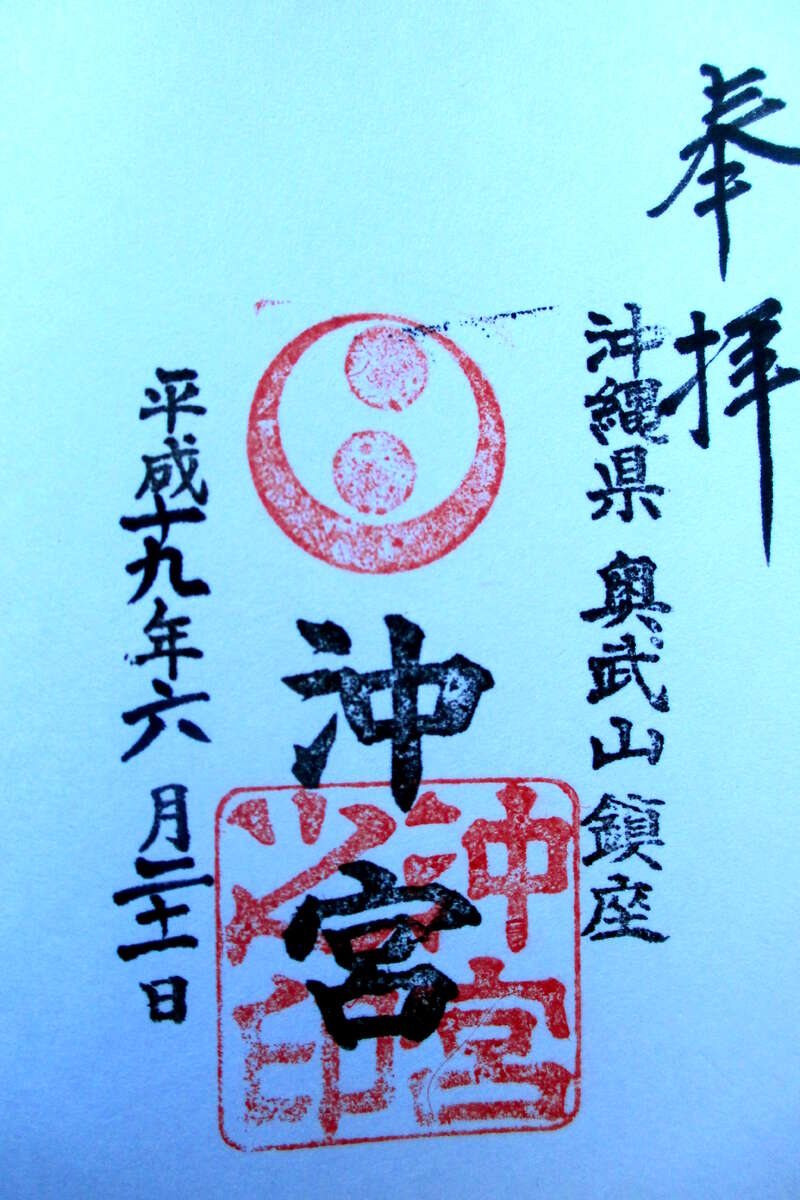 奉拝
沖縄県 奥武山 鎮座
沖宮
沖宮
之印
平成十九年六月二十一日